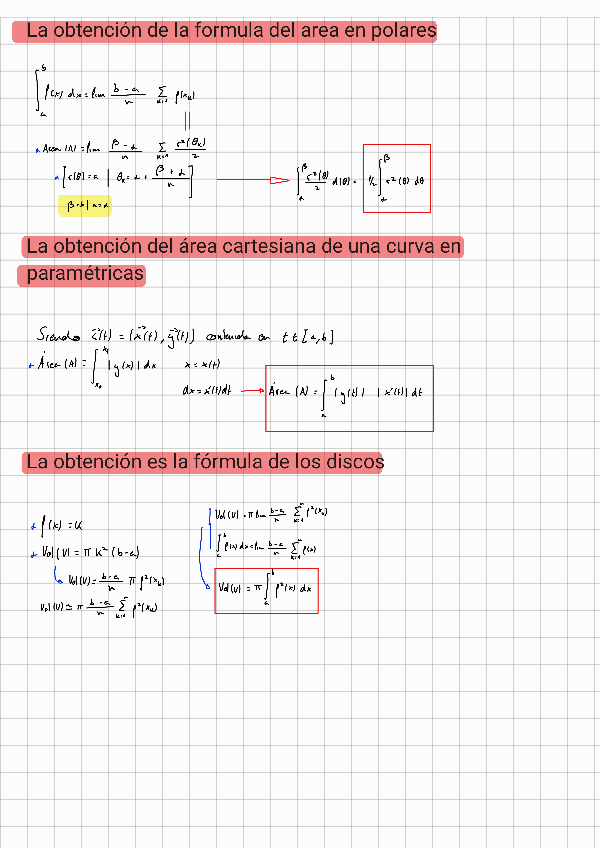 La obtención de la formula del area en polares
∫_a^b f(x) dx = lim (b-a)/n Σ_{k=1} f(x_k)
||
* Area (A) = lim (β-α)/n Σ_{k=1} r²(θ_k)/2
* [r(θ)=a | θ_k = α + (β+α)/n] → ∫_α^β r²(θ)/2 d(θ) = 1/2 ∫_α^β r²(θ) dθ
β=b | a=α
La obtención del área cartesiana de una curva en
paramétricas
Siendo c⃗(t) = (x⃗(t), y⃗(t)) contenida en t ∈ [a,b]
* Área (A) = ∫_{x_0}^{x_1} |y(x)| dx x = x(t)
dx = x'(t)dt → Área (A) = ∫_a^b |y(t)| · |x'(t)| dt
La obtención es la fórmula de los discos
* f(x) = k
* Vol(V) = π k² (b-a)
Vol(V) = (b-a)/n π f²(x_k)
Vol(V) ≃ π (b-a)/n Σ_{k=1}^n f²(x_k)
Vol(V) = π lim (b-a)/n Σ_{k=1}^n f²(x_k)
∫_a^b f(x) dx = lim (b-a)/n Σ_{k=1}^n f(x)
Vol(V) = π ∫_a^b f²(x) dx